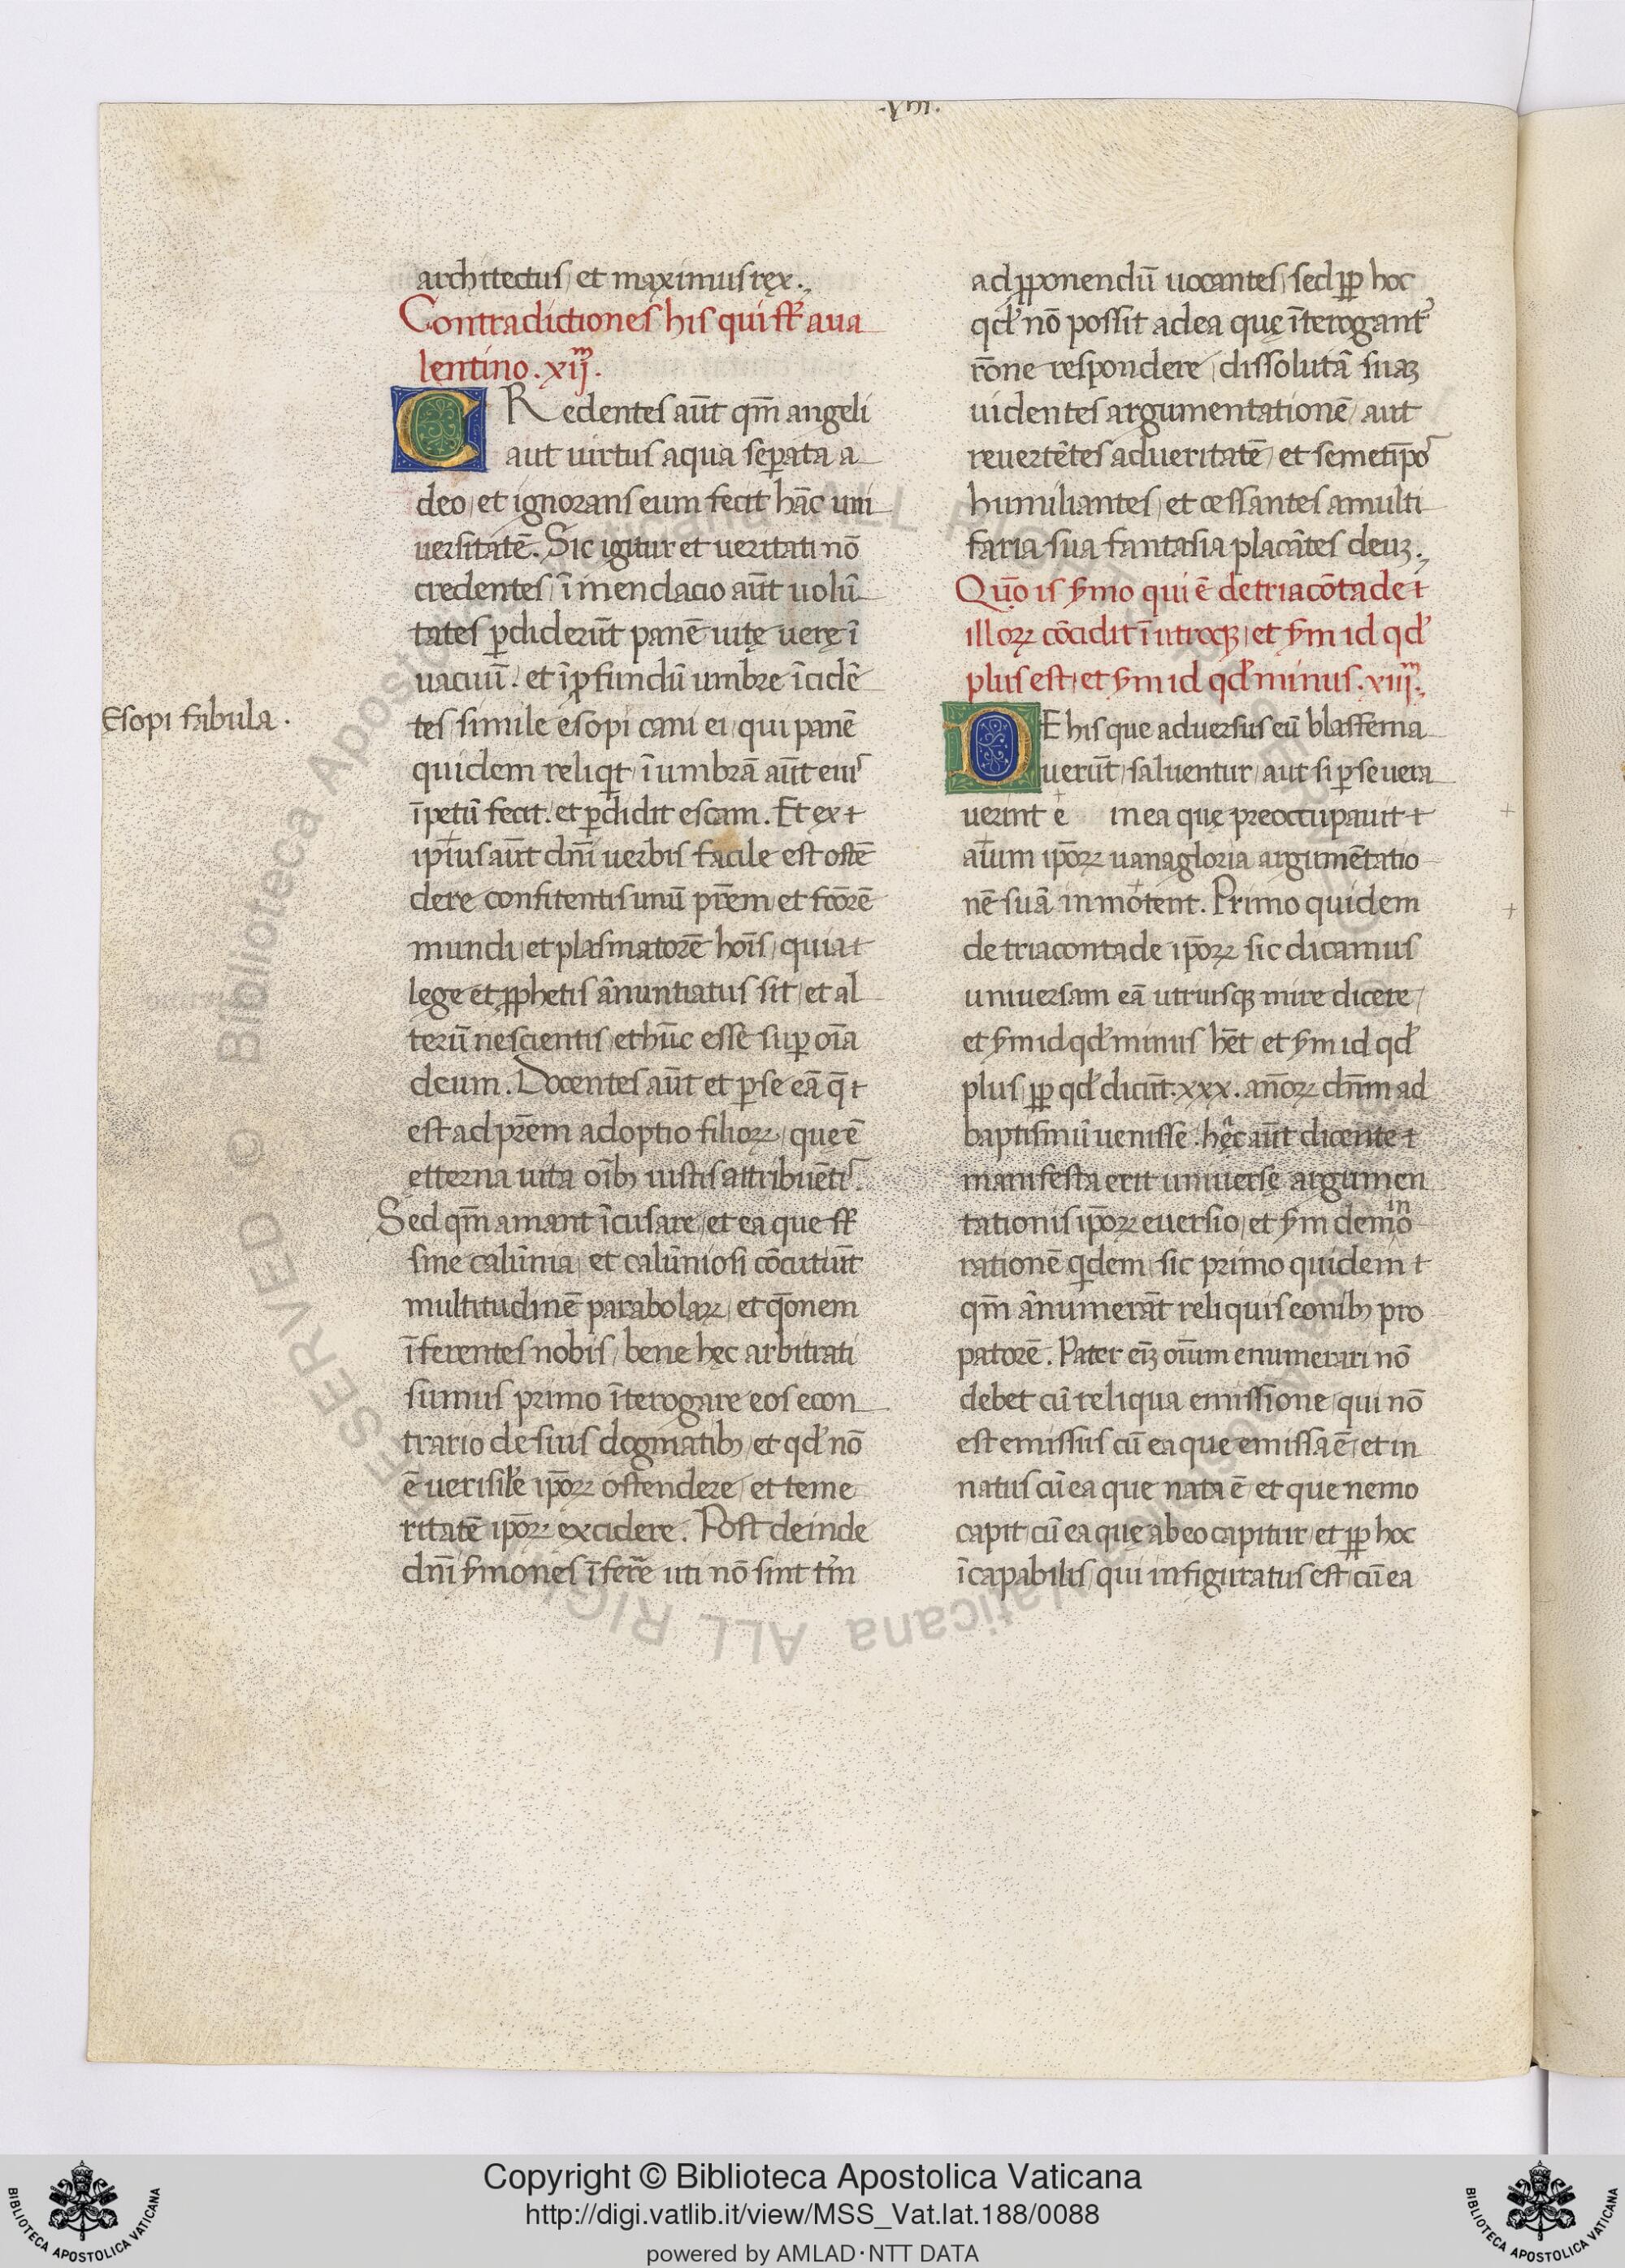 .viii.
architectus, et maximus rex.,
Contradictiones his qui sūt a ua
lentino. xij.ᵐ
CRedentes aūt qm̄ angeli
aut uirtus aqua sep̱ata a
deo, et ignorans eum fecit hāc uni
uersitatē. Sic igitur et ueritati nō
credentes, ī mendacio aūt uolū
tates ꝑdiderūt panē uitę uerę ī
uacuū. et ī ꝓfundū umbre īcidē
tes, simile esopi cani ei, qui panē
quidem reliqͥt, ī umbrā aūt eiuˢ
īpetū fecit. et ꝑdidit escam. Et ex
ip̄ius aūt dn̄i uerbis facile est ostē
dere confitentis unū pr̄em, et fcōrē
mundi, et plasmatorē hoīs, quia
lege et ꝓphetis ānuntiatus sit, et al
terū nescientis, et hūc esse suꝑ oīa
deum. Docentes aūt et ꝑ se eā q̄
est ad pr̄em adoptio filioꝝ, que ē
etterna uita oībꝫ iustis attribuētiˢ.
Sed qm̄ amant īcusare, et ea que sūt
sine calūnia, et calūniosi cōcutiūt
multitudinē parabolaꝝ, et qōnem
īferentes nobis, bene hęc arbitrati
sumus primo īterogare eos econ
trario de suis dogmatibꝫ, et qđ nō
ē uerisiłe ip̄oꝝ ostendere, et teme
ritatē ip̄oꝝ excidere. Post deinde
dn̄i ẜmones īferr̄e uti nō sint tm̄
Esopi fabula.
ad ꝓponendū uocantes, sed ꝓp hoc
qđ nō possit ad ea quę īterogantʳ
rōne respondere, dissolutā suaꝫ
uidentes argumentationē, aut
reuertētes ad ueritatē, et semetip̄oˢ
humiliantes, et cessantes a multi
faria sua fantasia placātes deuꝫ.,
Quō is ẜmo qui ē de triacōtade
illoꝝ cōcidit ī utroqꝫ, et ẜm id qđ
plus est, et ẜm id qđ minus. xiij.ᵐ,
DE his que aduersus eū blasfema
uerūt, saluentur, aut si ꝑseuera
uerint e in ea quę preoccupauit
aīum ip̄oꝝ uanagloria argumētatio
nē suā inmōtent. Primo quidem
de triacontade ip̄oꝝ sic dicamus
uniuersam eā utruisqꝫ mire dicere,
et ẜm id qđ minus hēt, et ẜm id qđ
plus, ꝓp qđ dicūt .xxx. an̄oꝝ dn̄m ad
baptismū uenisse. hęc aūt dicente
manifesta erit uniuersę argumen
tationis ip̄oꝝ euersio, et ẜm demōⁱⁿ
rationē qͥdem, sic primo quidem
qm̄ ānumerāt reliquis eonibꝫ pro
patorē. Pater eīꝫ oīum enumerari nō
debet cū reliqua emissione, qui nō
est emissus cū ea que emissa ē, et in
natus cū ea que nata ē et que nemo
capit, cū ea quę ab eo capitur, et ꝓp hoc
īcapabilis, qui infiguratus est cū ea
Copyright © Biblioteca Apostolica Vaticana
http://digi.vatlib.it/view/MSS_Vat.lat.188/0088
powered by AMLAD·NTT DATA
BIBLIOTECA APOSTOLICA VATICANA
BIBLIOTECA APOSTOLICA VATICANA